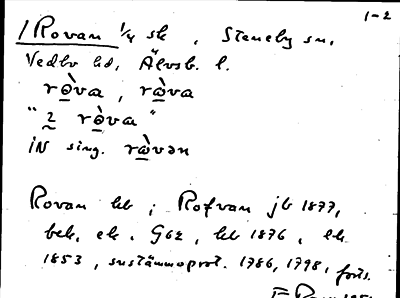 1-2
1 Rovan 1/4 sk , Steneby sn,
Vedbo hd, Älvsb. l.
rə̀va , rɷ̀va
" 2 rə̀va "
iN sing. rɷ̀vən
Rovan kb ; Rofvan jb 1877,
bek, ek. G62 , kb 1876 , lk
1853 , sustämmoprot. 1786, 1798, forts.